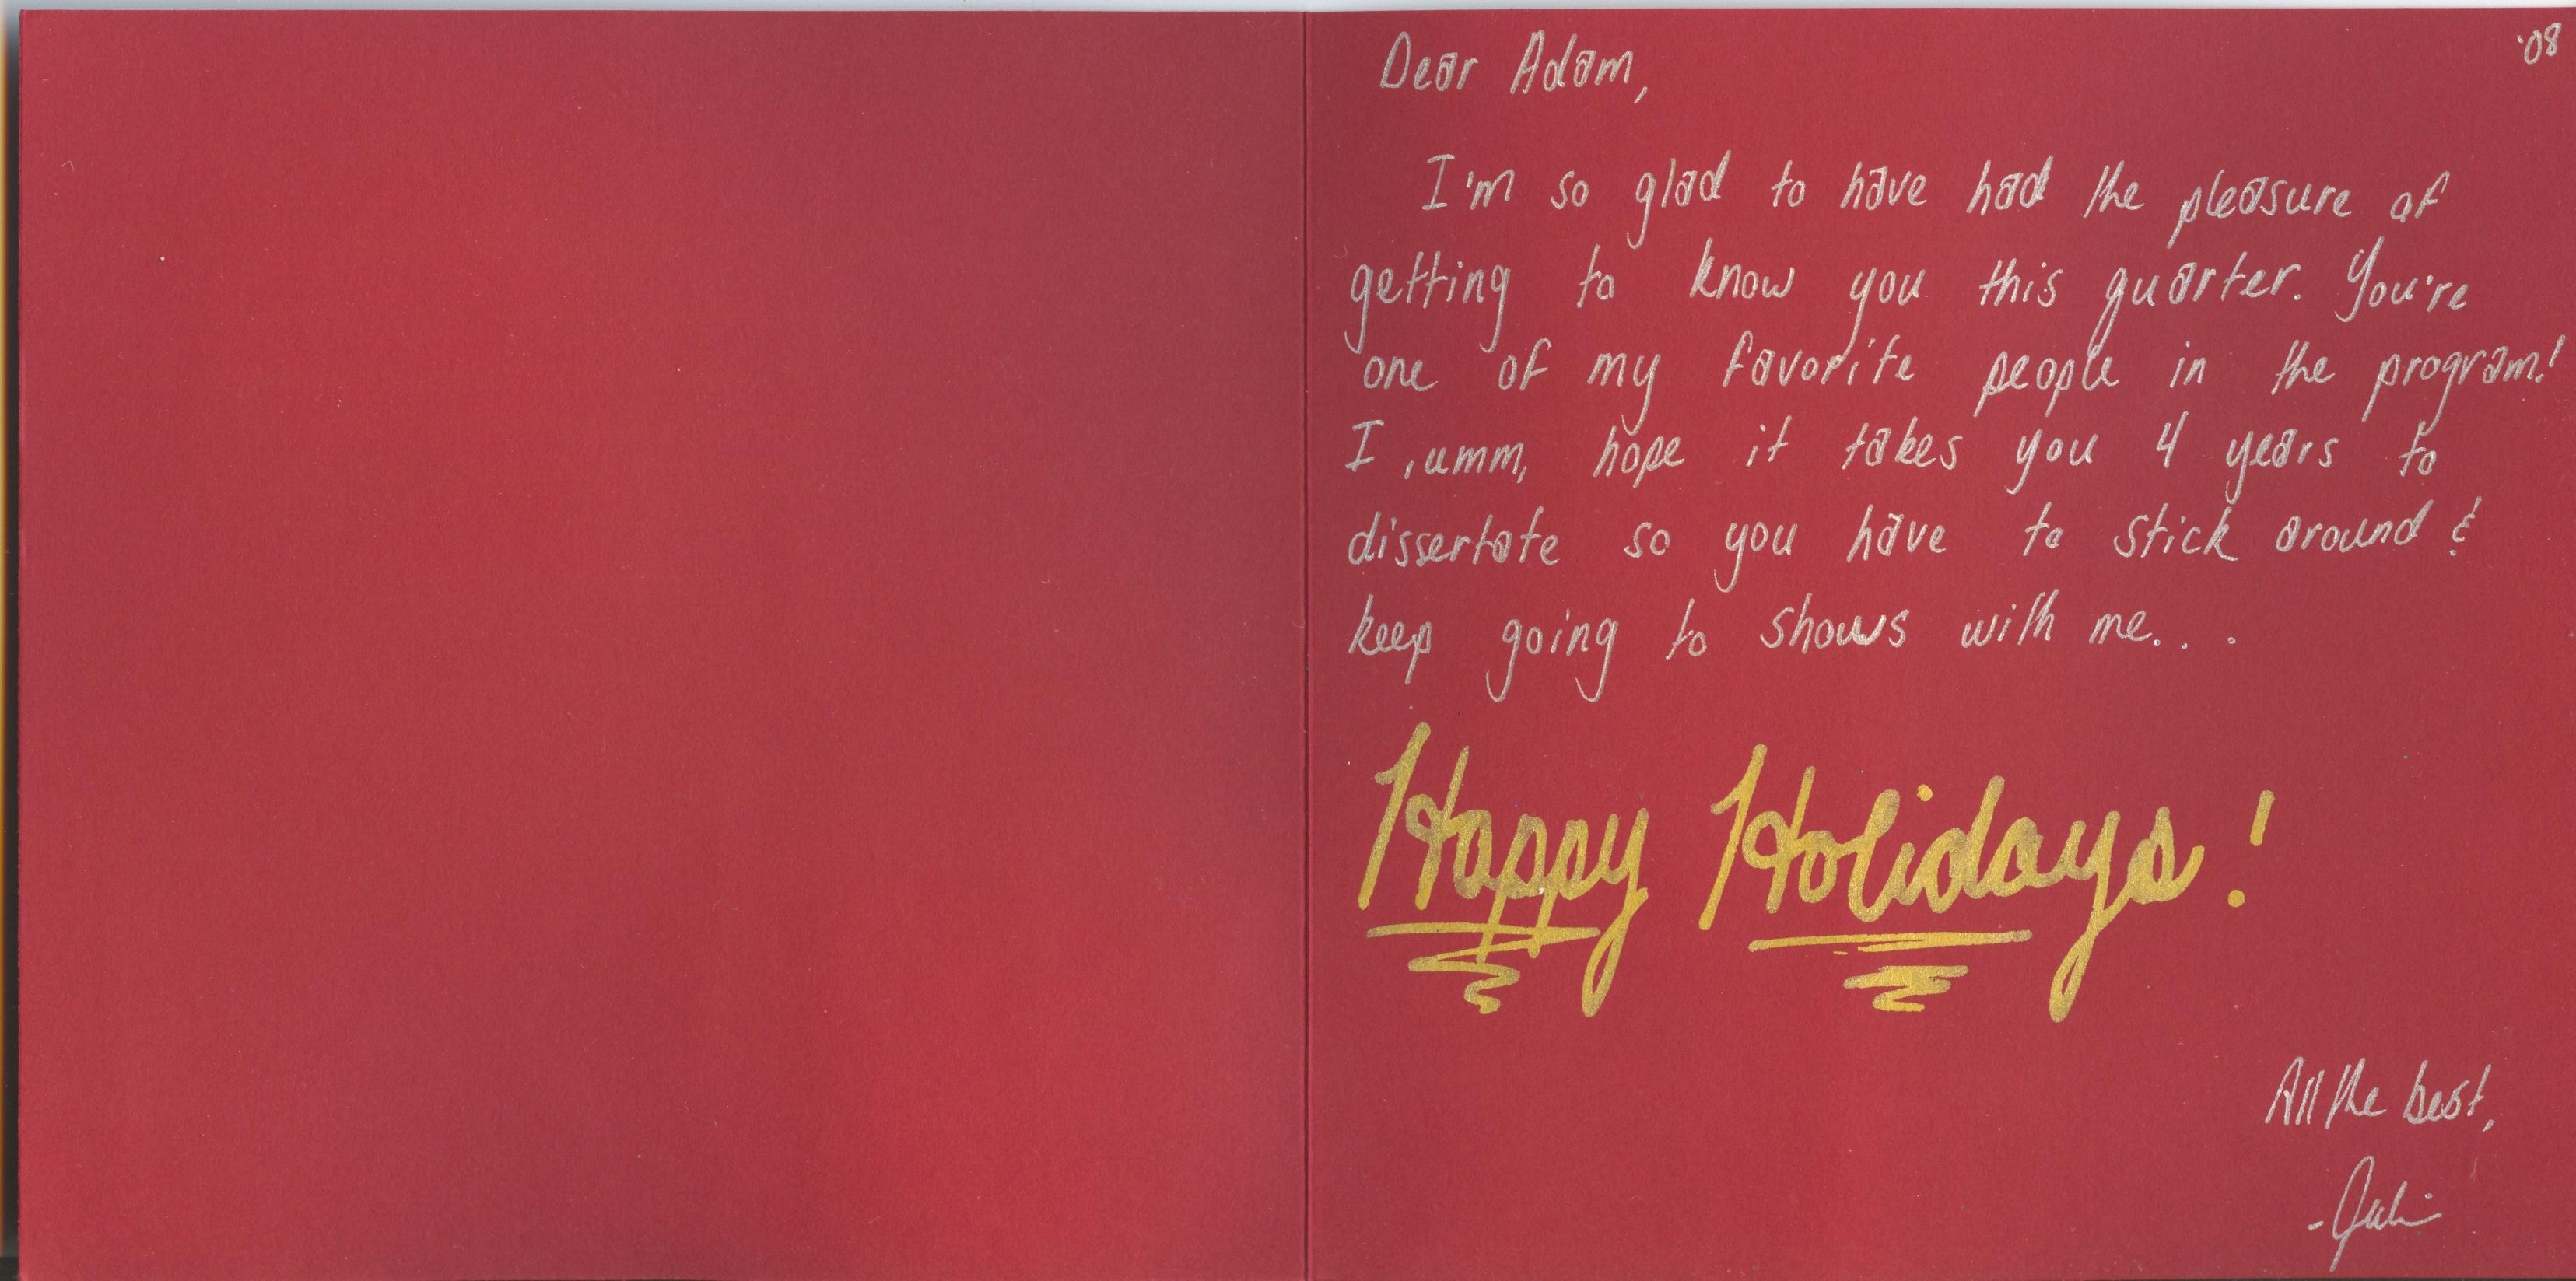 '08
Dear Adam,
I'm so glad to have had the pleasure of
getting to know you this quarter. You're
one of my favorite people in the program!
I, umm, hope it takes you 4 years to
dissertate so you have to stick around &
keep going to shows with me...
Happy Holidays!
All the best,